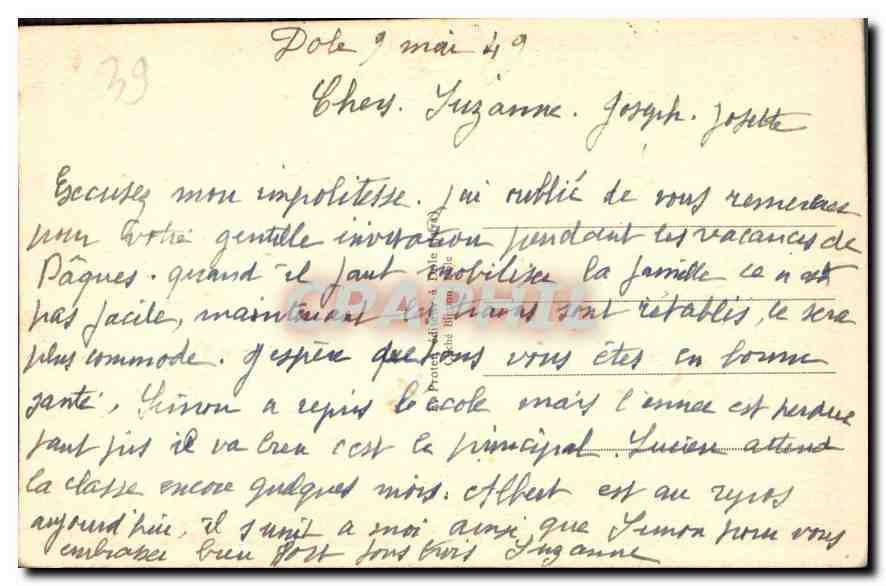 Dole 9 mai 49
39
Chers. Suzanne. Joseph. Josette
Excusez mon impolitesse. j'ai oublié de vous remercier
pour votre gentille invitation pendant les vacances de
Pâques. quand il faut mobiliser la famille ce n'est
pas facile, maintenant les trains sont rétablis, ce sera
plus commode. J'espère que tous vous êtes en bonne
santé, Simon a repris l'école mais l'année est perdue
tant pis il va bien c'est le principal. Lucien attend
la classe encore quelques mois. Albert est au repos
aujourd'hui, il s'unit a moi ainsi que Simon pour vous
embrasser bien fort tous trois Suzanne
CPAPHIL